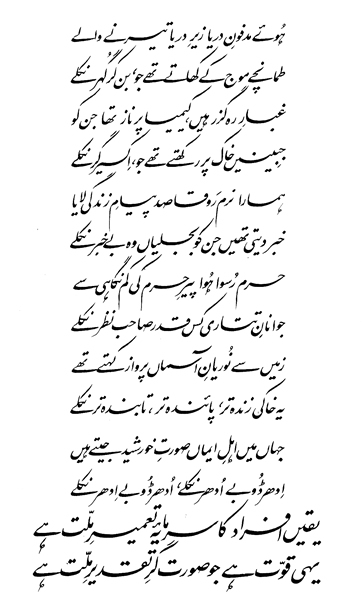 ہُوئے مدفونِ دریا زیرِ دریا تیرنے والے
طمانچے موج کے کھاتے تھے جو، بن کر گُہر نکلے
غبارِ رہ گزر ہیں، کیمیا پر ناز تھا جن کو
جبینیں خاک پر رکھتے تھے جو، اِکسیر گر نکلے
ہمارا نرم رَو قاصد پیامِ زندگی لایا
خبر دیتی تھیں جن کو بجلیاں وہ بے خبر نکلے
حرم رُسوا ہُوا پیرِ حرم کی کم نگاہی سے
جوانانِ تتاری کس قدر صاحب نظر نکلے
زمیں سے نُوریانِ آسماں پرواز کہتے تھے
یہ خاکی زندہ تر، پائندہ تر، تابندہ تر نکلے
جہاں میں اہلِ ایماں صورتِ خورشید جیتے ہیں
اِدھر ڈوبے اُدھر نکلے، اُدھر ڈوبے اِدھر نکلے
یقیں افراد کا سرمایۂ تعمیرِ ملّت ہے
یہی قوّت ہے جو صورت گرِ تقدیرِ ملّت ہے